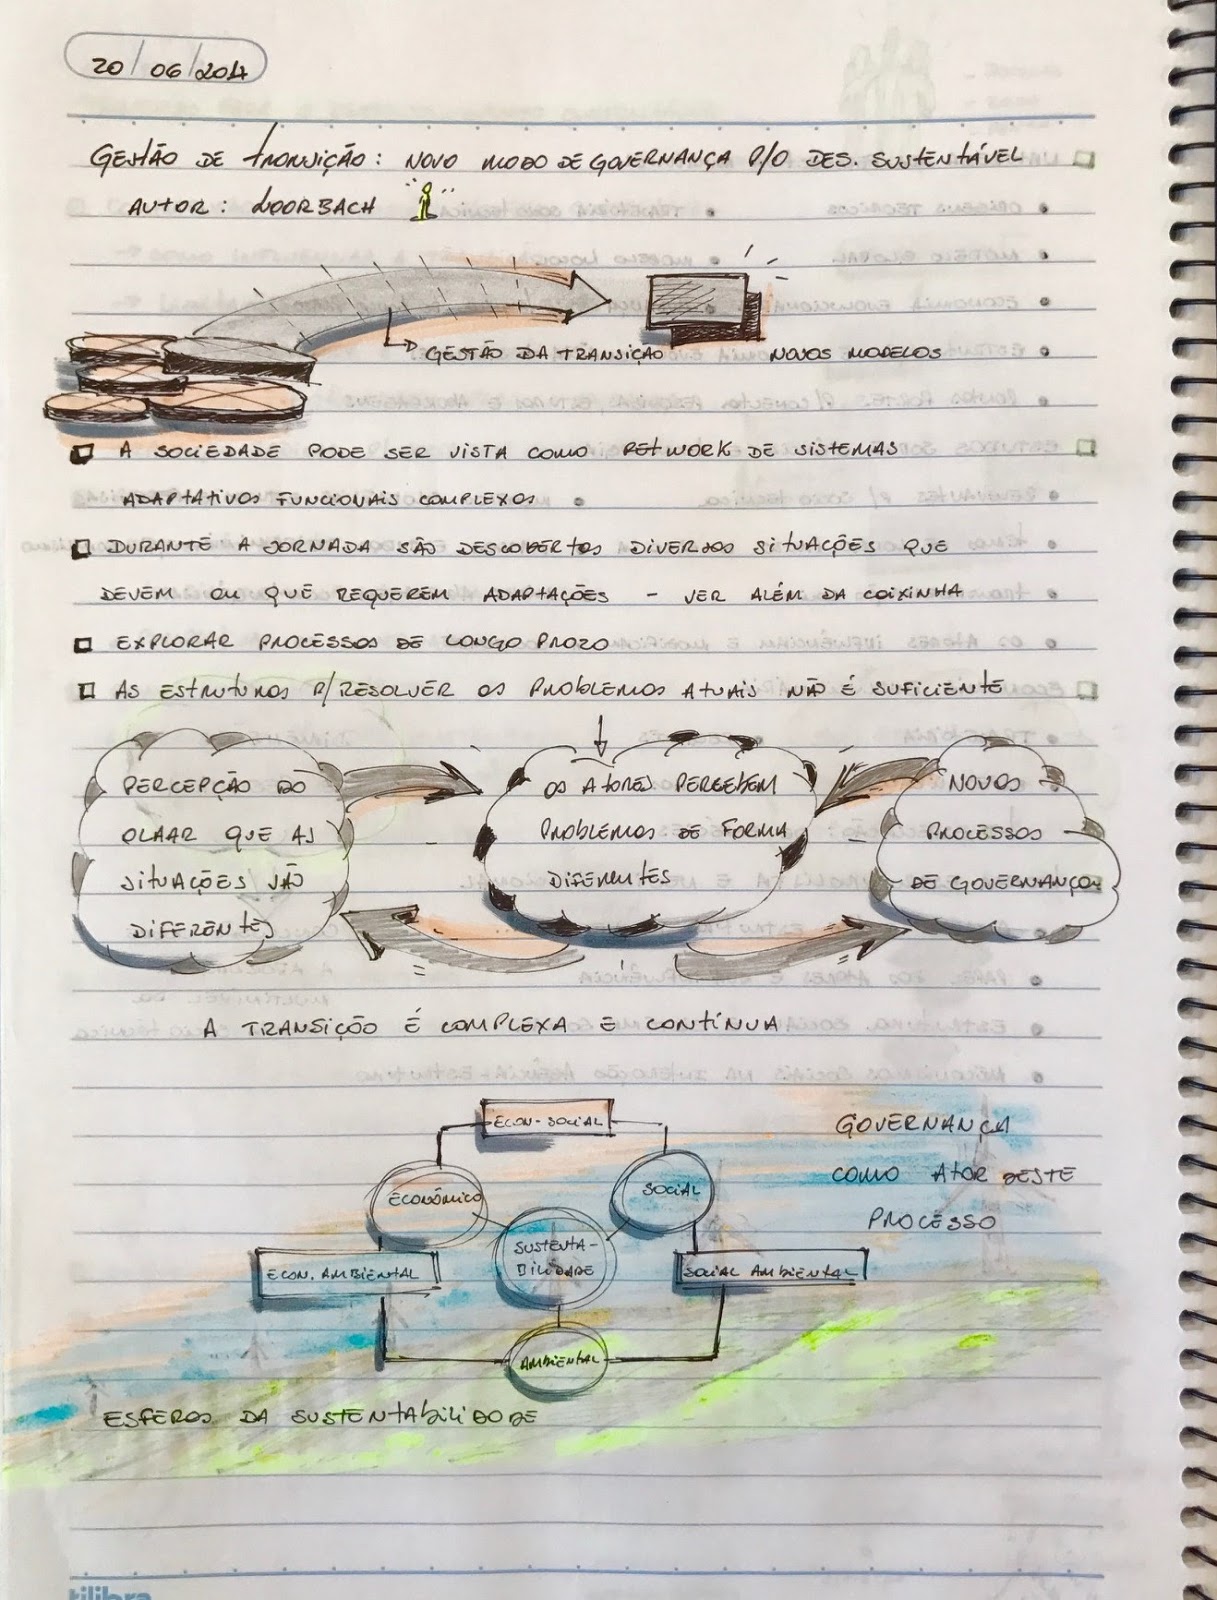 20/06/2017
GESTÃO DE TRANSIÇÃO: NOVO MODO DE GOVERNANÇA P/O DES. SUSTENTÁVEL
AUTOR: LOORBACH
GESTÃO DA TRANSIÇÃO
NOVOS MODELOS
A SOCIEDADE PODE SER VISTA COMO NETWORK DE SISTEMAS
ADAPTATIVOS FUNCIONAIS COMPLEXOS
DURANTE A JORNADA SÃO DESCOBERTOS DIVERSAS SITUAÇÕES QUE
DEVEM OU QUE REQUEREM ADAPTAÇÕES - VER ALÉM DA COIXINHA
EXPLORAR PROCESSOS DE LONGO PRAZO
AS ESTRUTURAS P/RESOLVER OS PROBLEMAS ATUAIS NÃO É SUFICIENTE
PERCEPÇÃO DO
OLHAR QUE AS
SITUAÇÕES SÃO
DIFERENTES
OS ATORES PERCEBEM
PROBLEMAS DE FORMA
DIFERENTES
NOVOS
PROCESSOS
DE GOVERNANÇA
A TRANSIÇÃO É COMPLEXA E CONTÍNUA
ECON-SOCIAL
ECONÔMICO
SOCIAL
SUSTENTA-
BILIDADE
ECON. AMBIENTAL
SOCIAL AMBIENTAL
AMBIENTAL
GOVERNANÇA
COMO ATOR DESTE
PROCESSO
ESFERAS DA SUSTENTABILIDADE
tilibra